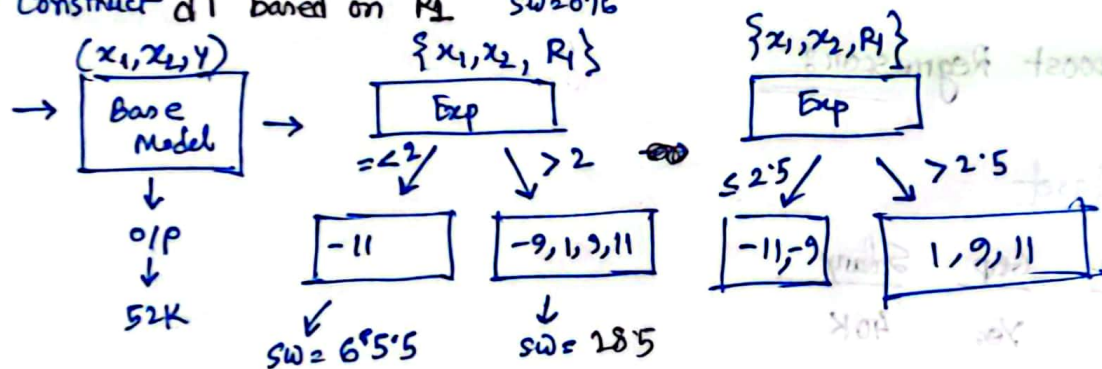 Construct dT based on R1
(x1, x2, Y)
Base Model
O/P
52K
{x1, x2, R1}
Exp
=<2
>2
-11
-9, 1, 9, 11
SW =
SW = 28.5
{x1, x2, R1}
Exp
≤ 2.5
> 2.5
-11, -9
1, 9, 11